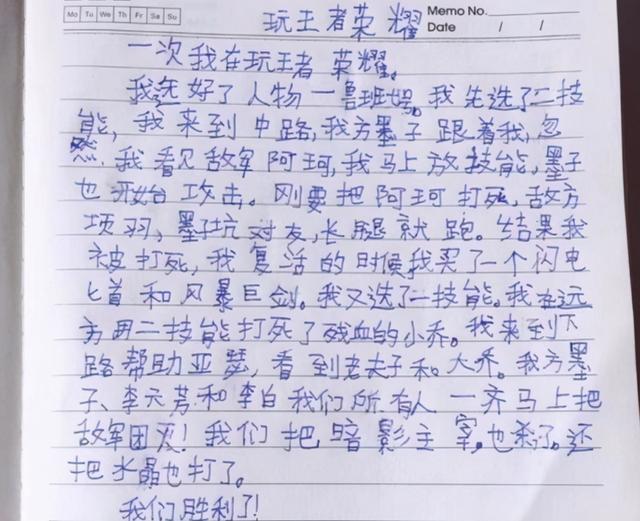 Mo Tu We Th Fr Sa Su
Memo No.
Date / /
玩王者荣耀
一次我在玩王者荣耀。
我选好了人物一鲁班号。我先选了二技
能，我来到中路，我方墨子跟着我，忽
然，我看见敌军阿珂，我马上放技能，墨子
也开始攻击。刚要把阿珂打死，敌方
项羽、墨子坑对友，长腿就跑。结果我
被打死，我复活的时候我买了一个闪电
匕首和风暴巨剑。我又选了二技能。我在远
方用二技能打死了残血的小乔。我来到下
路帮助亚瑟，看到老夫子和大乔。我方墨
子、李元芳和李白我们所有人一齐马上把
敌军团灭！我们把暗影主宰，也杀了。还
把水晶也打了。
我们胜利了！